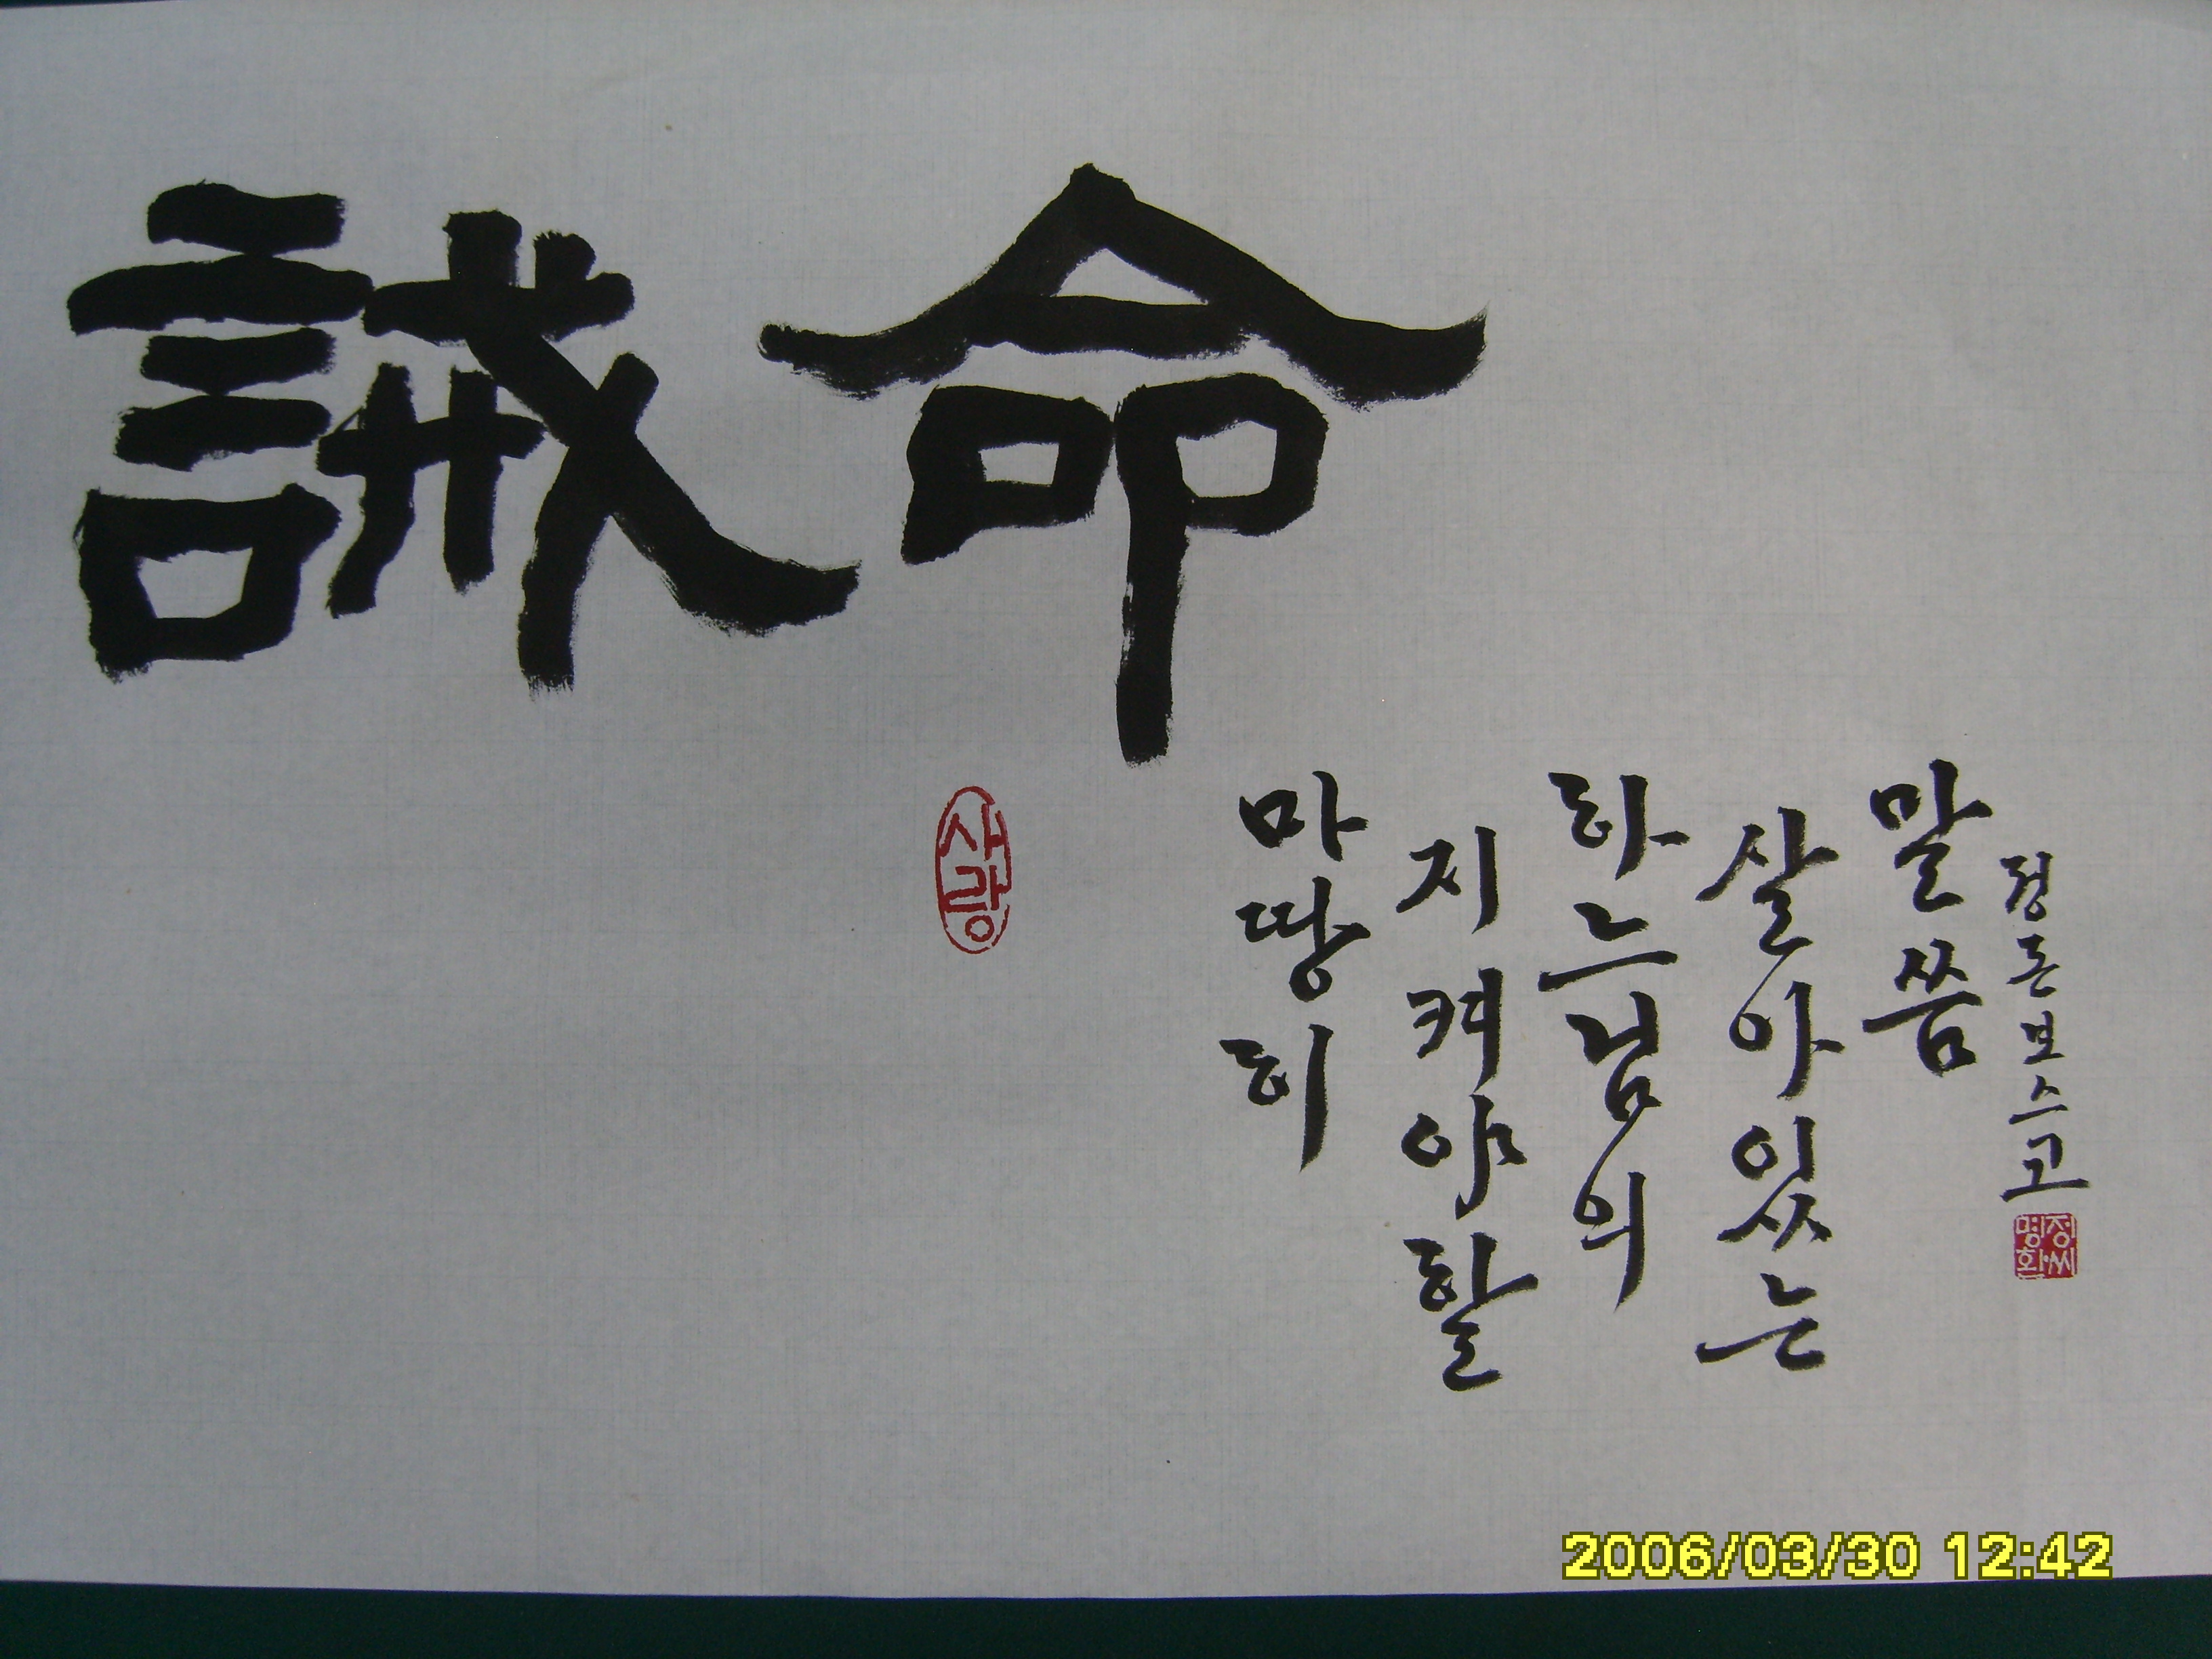 誡命
사랑
마땅히
지켜야할
하느님의
살아있는
말씀
정돈보스고
정씨
명환
2006/03/30 12:42